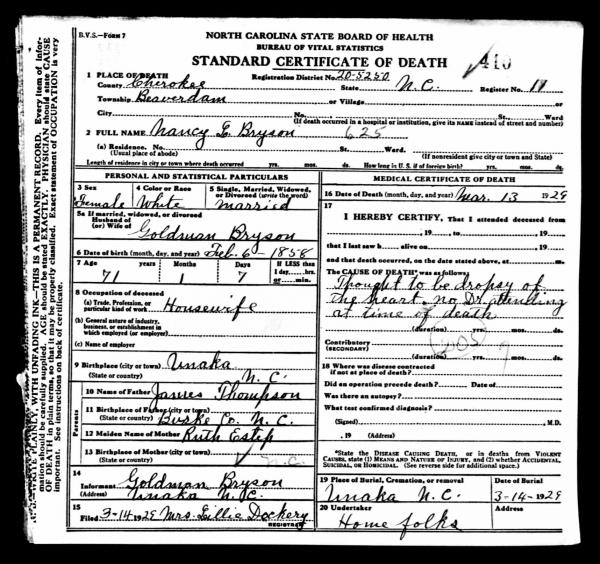 B.V.S.—FORM 7
NORTH CAROLINA STATE BOARD OF HEALTH
BUREAU OF VITAL STATISTICS
STANDARD CERTIFICATE OF DEATH
410
1 PLACE OF DEATH
Registration District No. 20-5250
County Cherokee State N.C. Register No. 11
Township Beaverdam or Village or
City No. St. Ward
(If death occurred in a hospital or institution, give its NAME instead of street and number)
2 FULL NAME Nancy E. Bryson 625
(a) Residence. No. St. Ward.
(Usual place of abode) (If nonresident give city or town and State)
Length of residence in city or town where death occurred yrs. mos. ds. How long in U. S. if of foreign birth? yrs. mos. ds.
PERSONAL AND STATISTICAL PARTICULARS
3 Sex 4 Color or Race 5 Single, Married, Widowed, or Divorced (write the word)
Female White married
5a If married, widowed, or divorced
Husband of
(or) Wife of Goldman Bryson
6 Date of birth (month, day, and year) Feb. 6 - 1858
7 Age years Months Days If LESS than
71 1 7 1 day,....hrs.
or....min.
8 Occupation of deceased
(a) Trade, Profession, or
particular kind of work Housewife
(b) General nature of industry,
business, or establishment in
which employed (or employer)
(c) Name of employer
9 Birthplace (city or town) Unaka
(State or country) N.C.
Parents
10 Name of Father James Thompson
11 Birthplace of Father (city or town)
(State or country) Burke Co. N.C.
12 Maiden Name of Mother Ruth Estep
13 Birthplace of Mother (city or town)
(State or country) N.C.
14
Informant Goldman Bryson
(Address) Unaka N.C.
15
Filed 3-14 1929 Mrs. Lillie Dockery
REGISTRAR
MEDICAL CERTIFICATE OF DEATH
16 Date of Death (month, day, and year) Mar. 13 1929
17
I HEREBY CERTIFY, That I attended deceased from
, 19 , to , 19
that I last saw h alive on , 19
and that death occurred, on the date stated above, at m.
The CAUSE OF DEATH* was as follows:
Thought to be dropsy of
the heart. no Dr. attending
at time of death
(duration) yrs. mos. ds.
205
Contributory
(SECONDARY)
(duration) yrs. mos. ds.
18 Where was disease contracted
if not at place of death?
Did an operation precede death? Date of
Was there an autopsy?
What test confirmed diagnosis?
(Signed) , M.D.
, 19 (Address)
*State the DISEASE CAUSING DEATH, or in deaths from VIOLENT
CAUSES, state (1) MEANS AND NATURE OF INJURY, and (2) whether ACCIDENTAL,
SUICIDAL, or HOMICIDAL. (See reverse side for additional space.)
19 Place of Burial, Cremation, or removal Date of Burial
Unaka N.C. 3-14-1929
20 Undertaker Address
Home folks
WRITE PLAINLY, WITH UNFADING INK—THIS IS A PERMANENT RECORD. Every item of information should be carefully supplied. AGE should be stated EXACTLY. PHYSICIAN should state CAUSE OF DEATH in plain terms, so that it may be properly classified. Exact statement of OCCUPATION is very important. See instructions on back of certificate.